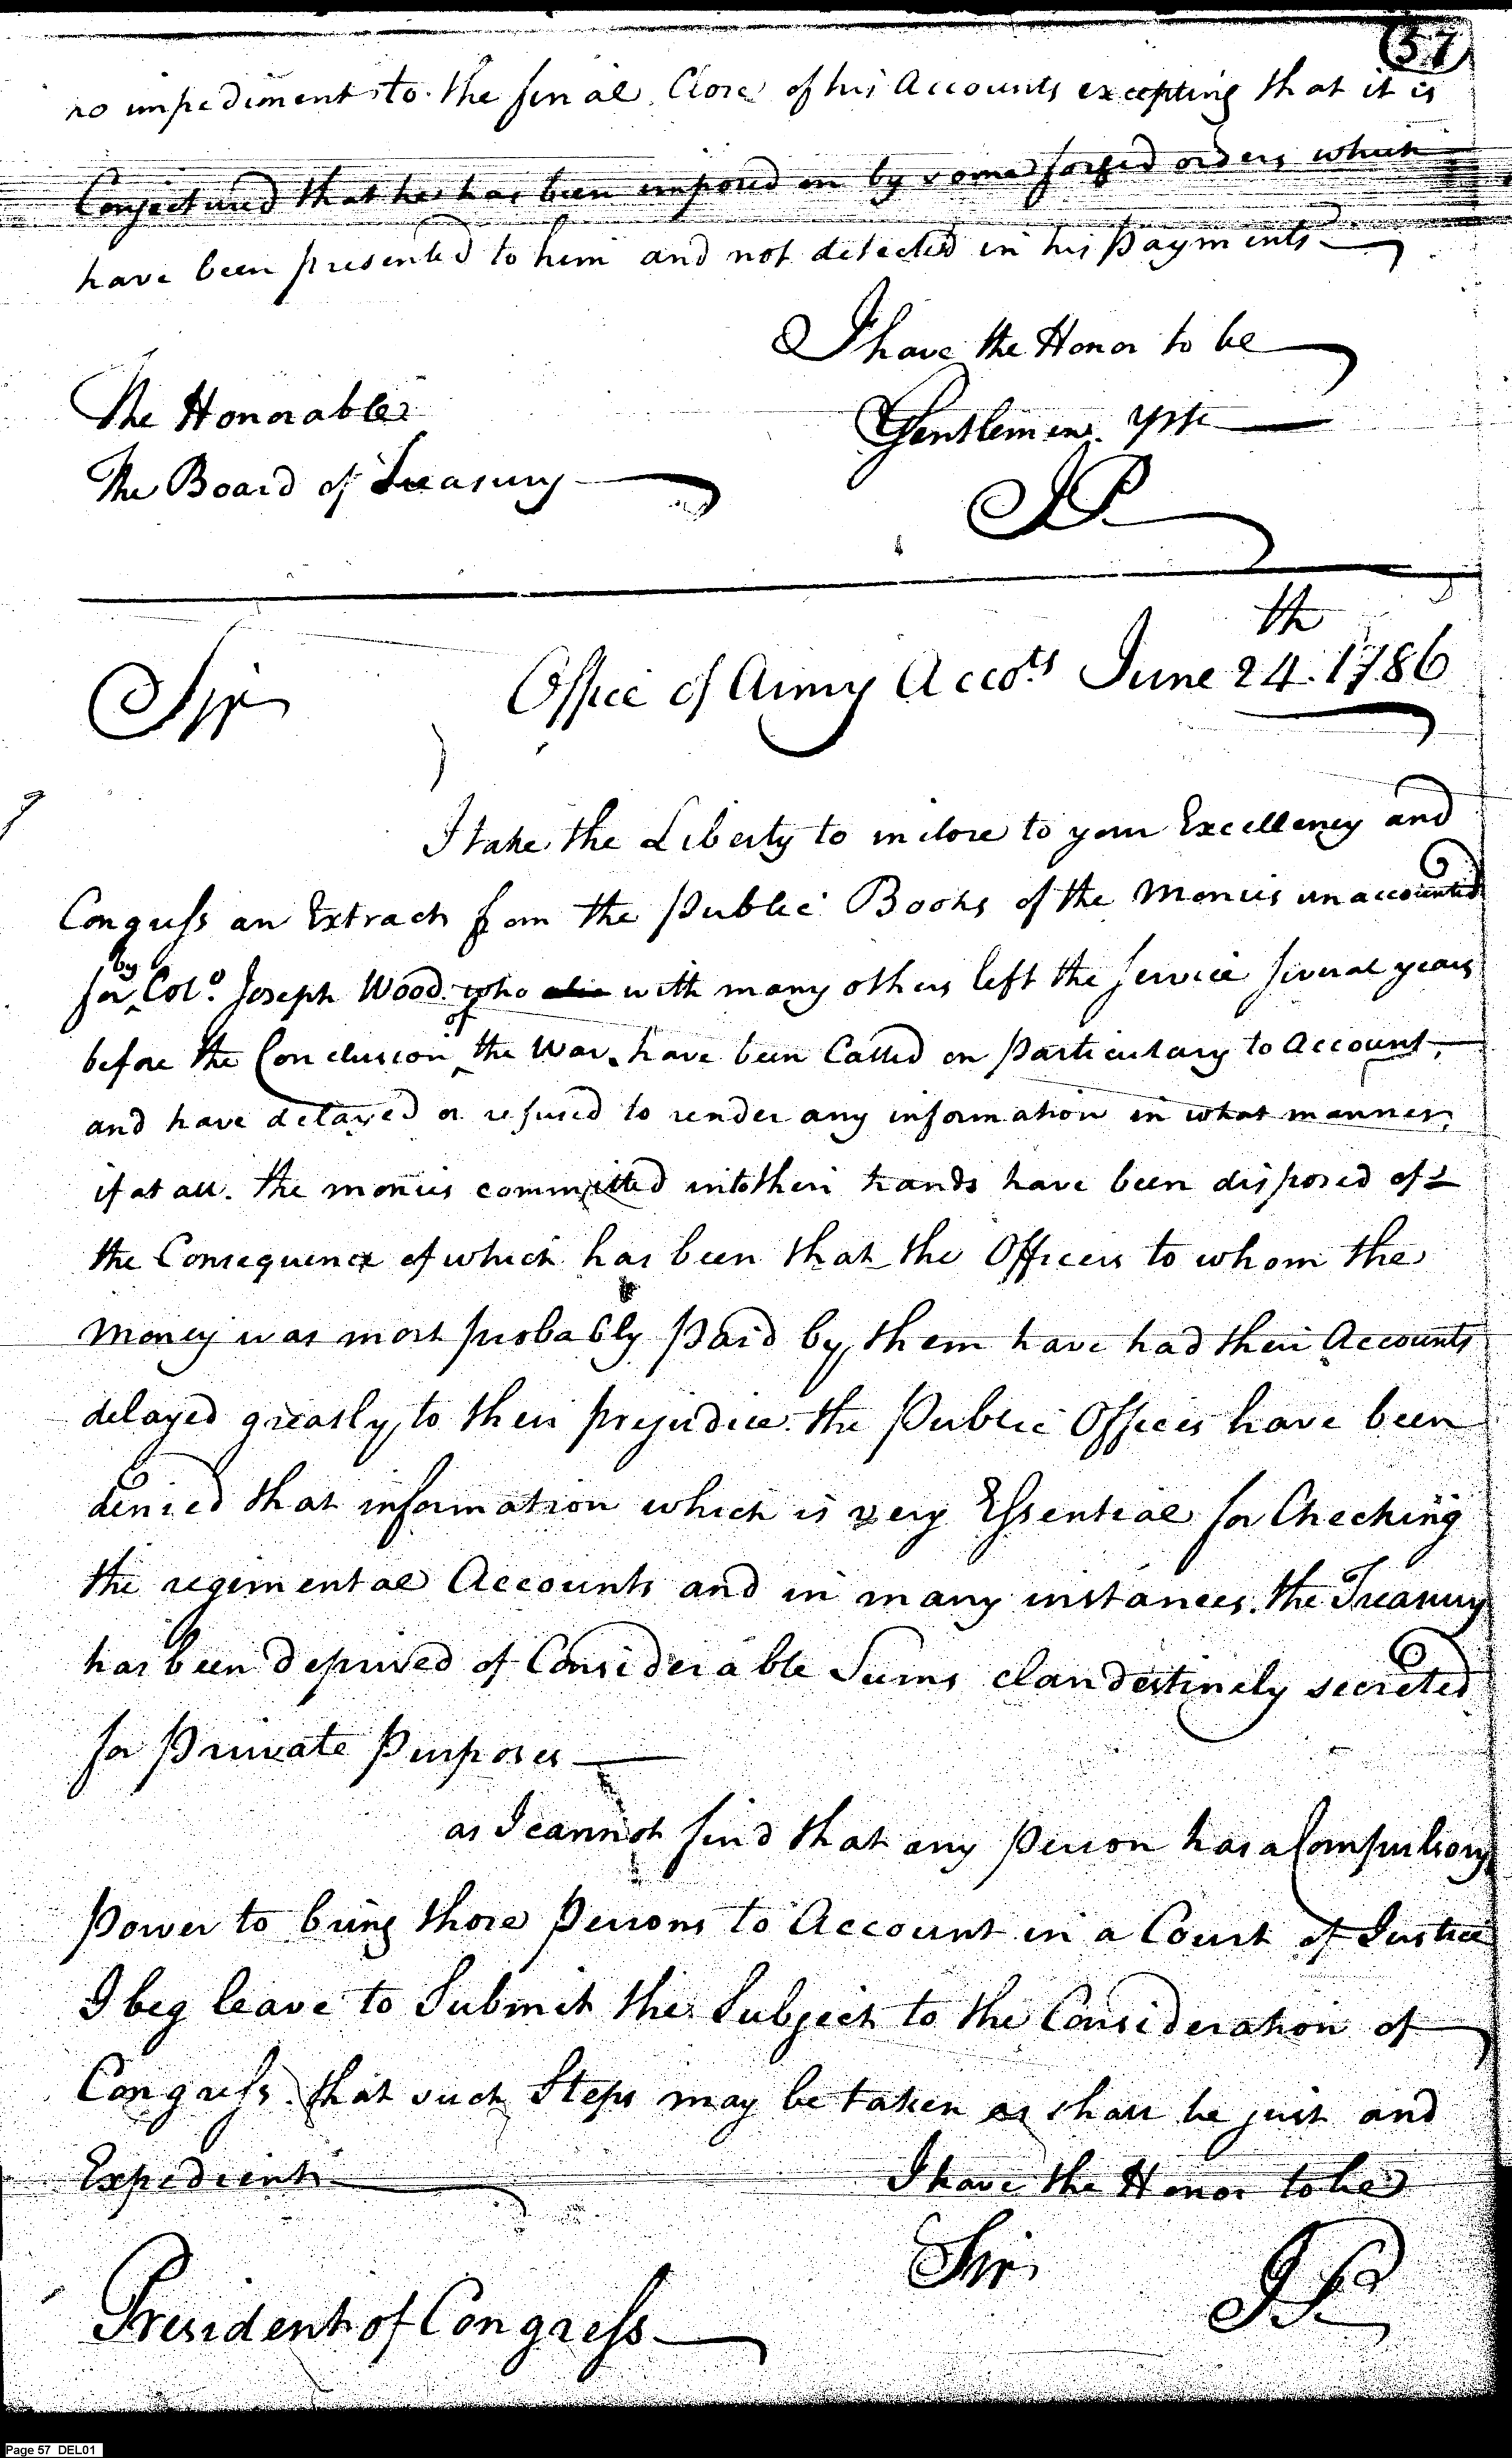 57
no impediment to the final Close of his Accounts excepting that it is
Conjectured that he has been imposed on by some forged orders which
have been presented to him and not detected in his payments
I have the Honor to be
The Honorable
Gentlemen
The Board of Treasury
JP
th
Sir Office of Army Accots June 24. 1786
I take the Liberty to inclose to your Excellency and
Congress an Extract from the Public Books of the Monies unaccounted
by
for Colo. Joseph Wood who with many others left the service several years
of
before the Conclusion the War. have been Called on particulary to Account,
and have delayed or refused to render any information in what manner,
if at all. the monies committed into their hands have been disposed of
the Consequence of which has been that the Officers to whom the
money was most probably paid by them have had their Accounts
delayed greatly to their prejudice. the Public Offices have been
denied that information which is very Essential for Checking
the regimental Accounts and in many instances. the Treasury
has been deprived of Considerable Sums clandestinely secreted
for Private Purposes
as I cannot find that any person has a Compulsory
Power to bring those persons to Account in a Court of Justice
I beg leave to Submit the Subject to the Consideration of
Congress. that such Steps may be taken as shall be just and
Expedient I have the Honor to be
Sir JP
President of Congress
Page 57 DEL01